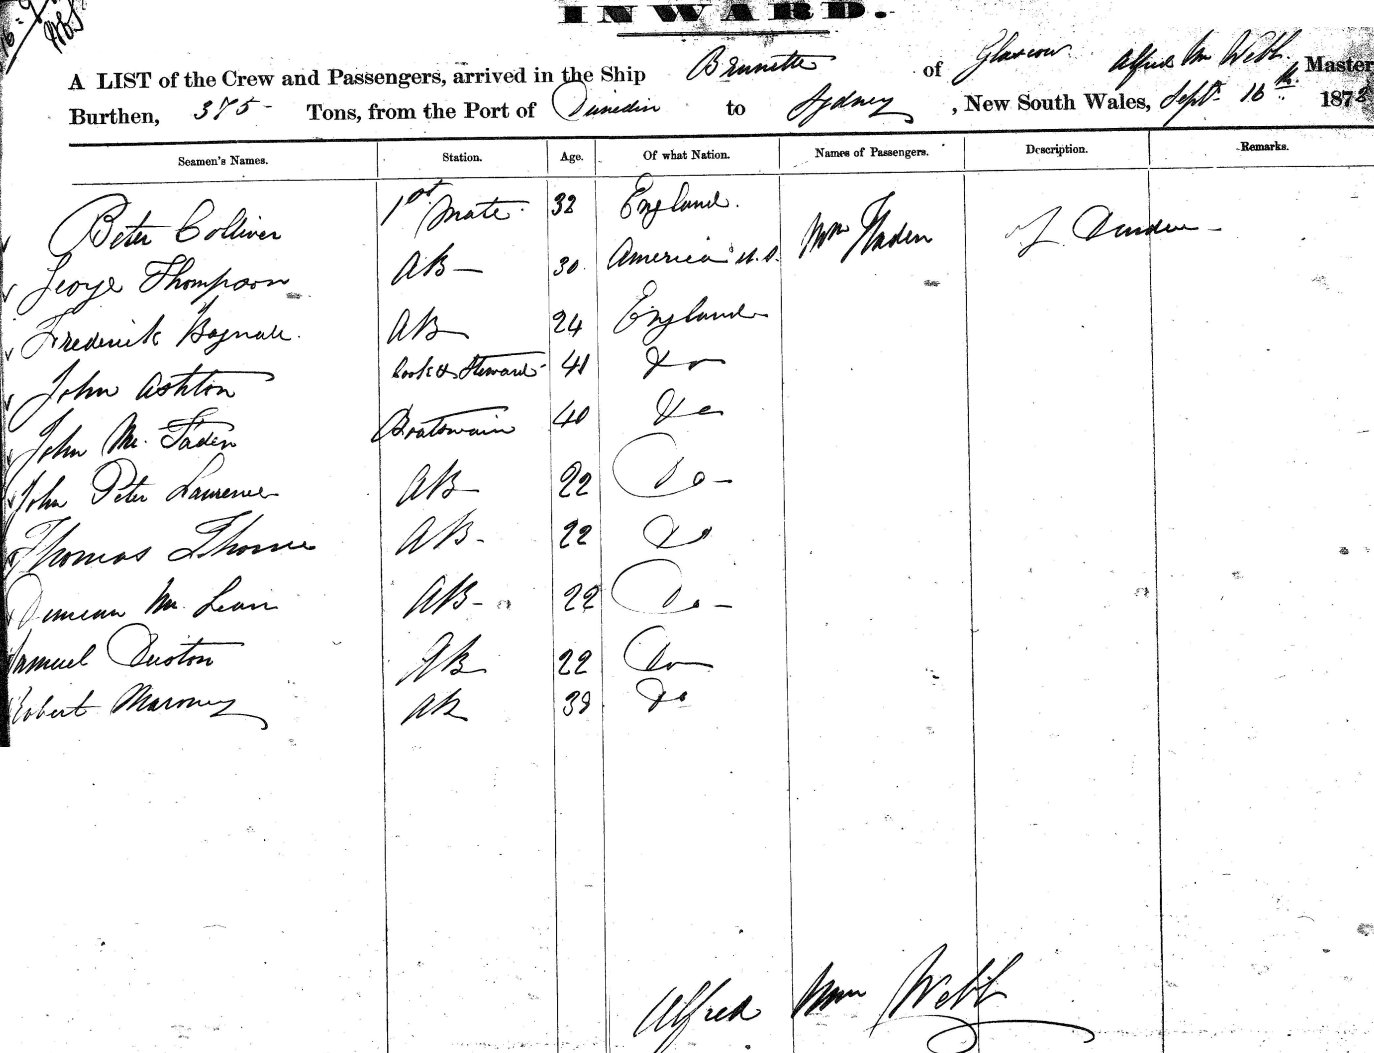 INWARD.
A LIST of the Crew and Passengers, arrived in the Ship Brunette of Glascow Alfred Wm Webb. Master
Burthen, 375 - Tons, from the Port of Dunedin to Sydney, New South Wales, Septr. 16th. 1878
Seamen's Names. Station. Age. Of what Nation. Names of Passengers. Description. Remarks.
Peter Colliver 1st Mate. 32 England. Wm Faden
George Thompson AB - 30. America U.S.
Frederick Bagnall. AB 24 England
John Ashton Cook & Steward 41 Do
John Mc. Faden Boatswain 40 Do
John Peter Laurence AB 22 Do -
Thomas Thorne AB - 22 Do
Duncan Mc. Lean AB - 22 Do -
Samuel Duston AB 22 Do
Robert Maroney AB 38 Do
Alfred Wm Webb